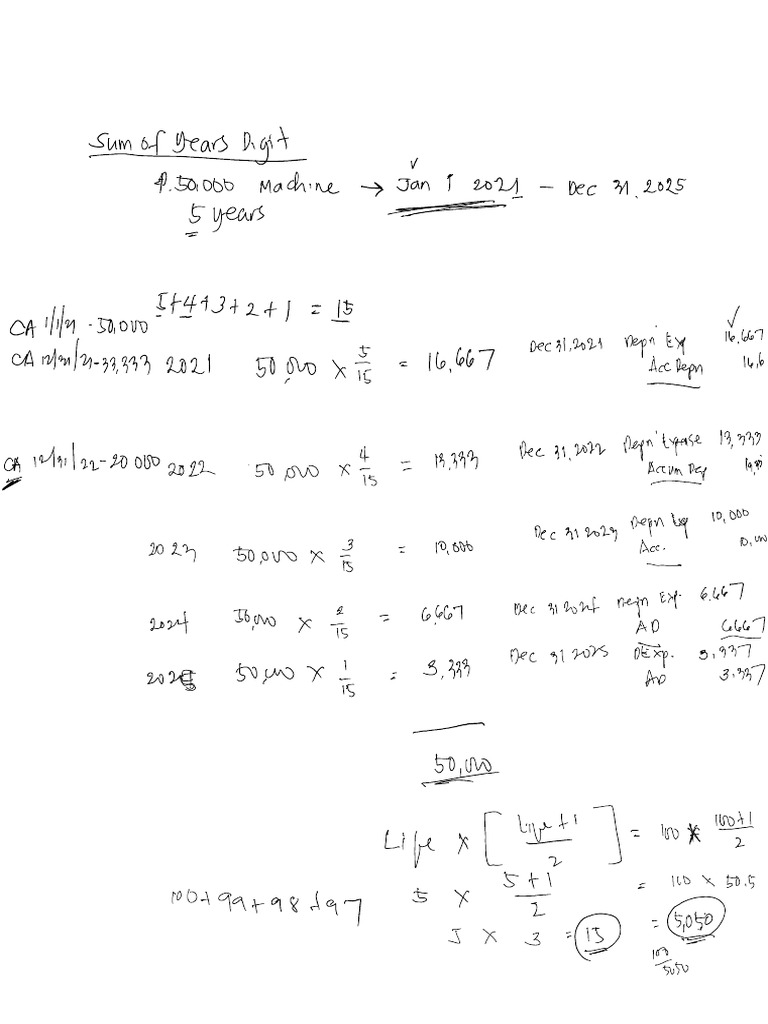 Sum of Years Digit
₱.50,000 Machine → Jan 1 2021 – Dec 31, 2025
5 years
5+4+3+2+1 = 15
CA 1/1/21 - 50,000
CA 12/31/21-33,333 2021 50,000 x 5/15 = 16,667 Dec 31, 2021 Depn Exp 16,667
Acc Depn 16,6
CA 12/31/22-20 000 2022 50,000 x 4/15 = 13,333 Dec 31, 2022 Depn Expense 13,333
Accum Dep
2023 50,000 x 3/15 = 10,000 Dec 31 2023 Depn Exp 10,000
Acc. 10,000
2024 50,000 x 2/15 = 6,667 Dec 31 2024 Depn Exp. 6,667
AD 6667
2025 50,000 x 1/15 = 3,333 Dec 31 2025 DExp. 3,337
AD 3,337
50,000
Life x [Life+1/2] = 100 x 100+1/2
5 x 5+1/2 = 100 x 50.5
100+99+98+97
5 x 3 = 15 = 5,050
100/5050